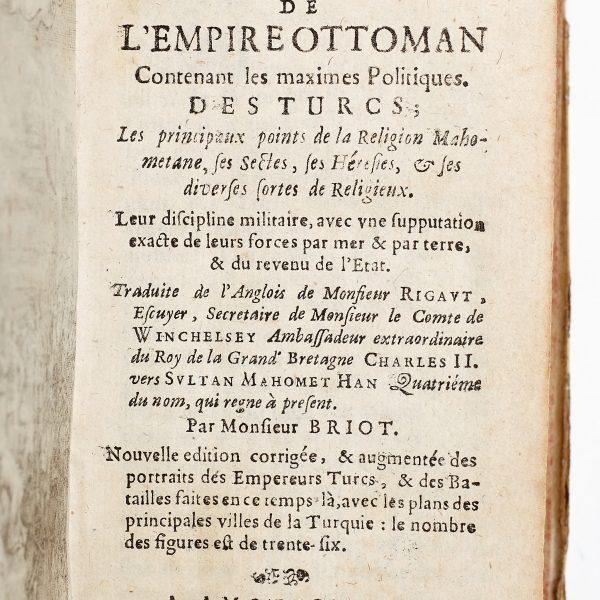 DE
L'EMPIRE OTTOMAN
Contenant les maximes Politiques.
DES TURCS;
Les principaux points de la Religion Maho-
metane, ſes Sectes, ſes Héreſies, & ſes
diverſes ſortes de Religieux.
Leur diſcipline militaire, avec vne ſupputation
exacte de leurs forces par mer & par terre,
& du revenu de l'Etat.
Traduite de l'Anglois de Monſieur RIGAVT,
Eſcuyer, Secretaire de Monſieur le Comte de
WINCHELSEY Ambaſſadeur extraordinaire
du Roy de la Grand' Bretagne CHARLES II.
vers SVLTAN MAHOMET HAN Quatriéme
du nom, qui regne à preſent.
Par Monſieur BRIOT.
Nouvelle edition corrigée, & augmentée des
portraits des Empereurs Turcs, & des Ba-
tailles faites en ce temps-là, avec les plans des
principales villes de la Turquie : le nombre
des figures eſt de trente-ſix.